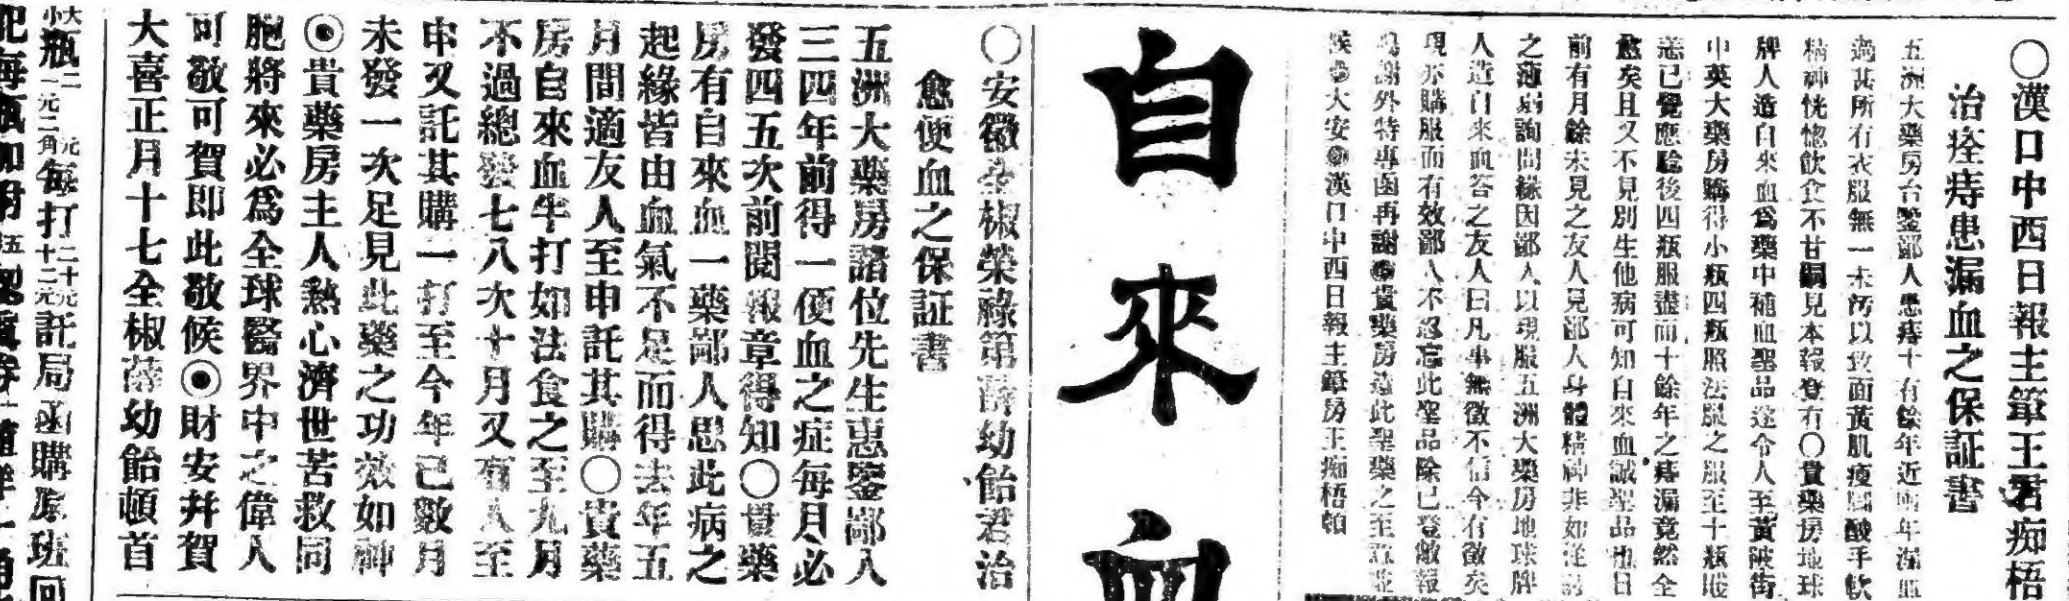 ○漢口中西日報主筆王君痴梧
治痊痔患漏血之保証書
五洲大藥房台鑒鄙人患痔十有餘年近兩年漏血
過甚所有衣服無一未汚以致面黃肌瘦四酸手軟
精神恍惚飲食不甘嗣見本報登有○貴藥房地球
牌人造自來血爲藥中補血聖品遂令人至黃陂街
中英大藥房購得小瓶四瓶照法服之服至十瓶
恙已覺應驗後四瓶服盡而十餘年之痔漏竟然全
愈矣且又不見別生他病可知自來血誠聖品也日
前有月餘未見之友人見鄙人身體精神非如從前
之詢問緣因鄙人以現服五洲大藥房地球牌
人造自來血答之友人曰凡事無徵不信今有徵矣
現亦購服而有效鄙人不忍忘此聖品除已登敝報
鳴謝外特專函再謝●貴藥房造此聖藥之至
候●大安●漢口中西日報主筆房王痴梧頓
自來血
○安徽全椒榮祿第薛幼飴君治
愈便血之保証書
五洲大藥房諸位先生惠鑒鄙人
三四年前得一便血之症每月必
發四五次前閱報章得知○貴藥
房有自來血一藥鄙人思此病之
起緣皆由血氣不足而得去年五
月間適友人至申託其購○貴藥
房自來血半打如法食之至九月
不過總發七八次十月又有人至
申又託其購一打至今年已數月
未發一次足見此藥之功效如神
◉貴藥房主人熱心濟世苦救同
胞將來必爲全球醫界中之偉人
可敬可賀即此敬候◉財安幷賀
大喜正月十七全椒薛幼飴頓首
大瓶二元小瓶一元二角每打二十元十二元託局函購原班回